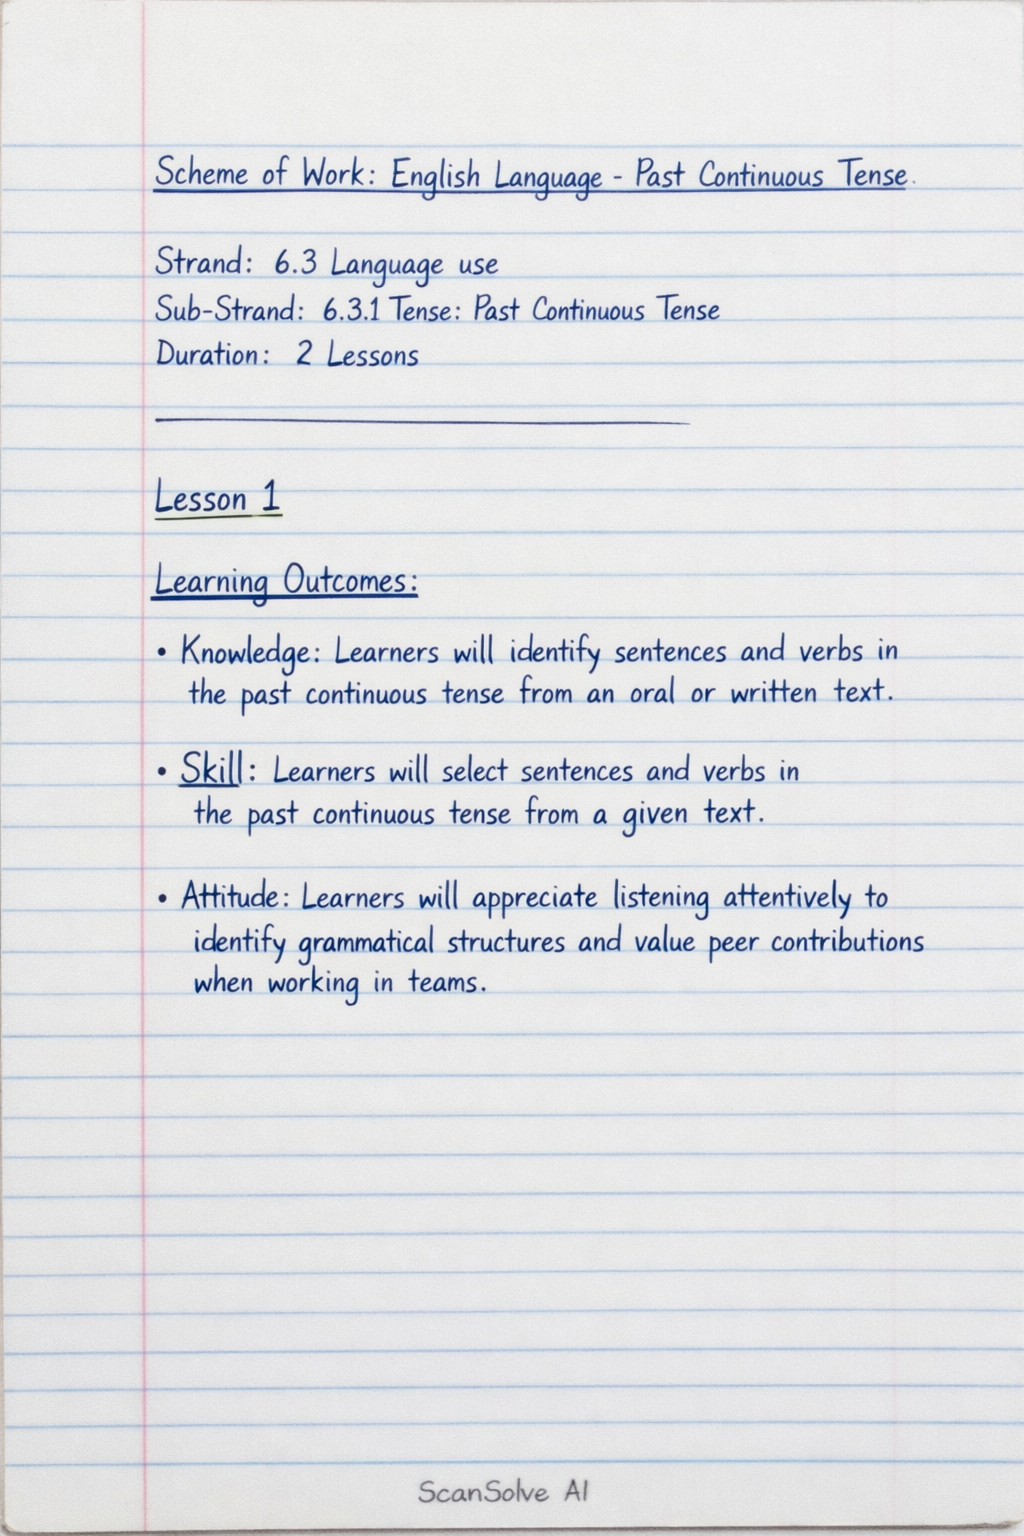 Scheme of Work: English Language - Past Continuous Tense.
Strand: 6.3 Language use
Sub-Strand: 6.3.1 Tense: Past Continuous Tense
Duration: 2 Lessons
Lesson 1
Learning Outcomes:
• Knowledge: Learners will identify sentences and verbs in
the past continuous tense from an oral or written text.
• Skill: Learners will select sentences and verbs in
the past continuous tense from a given text.
• Attitude: Learners will appreciate listening attentively to
identify grammatical structures and value peer contributions
when working in teams.
ScanSolve AI